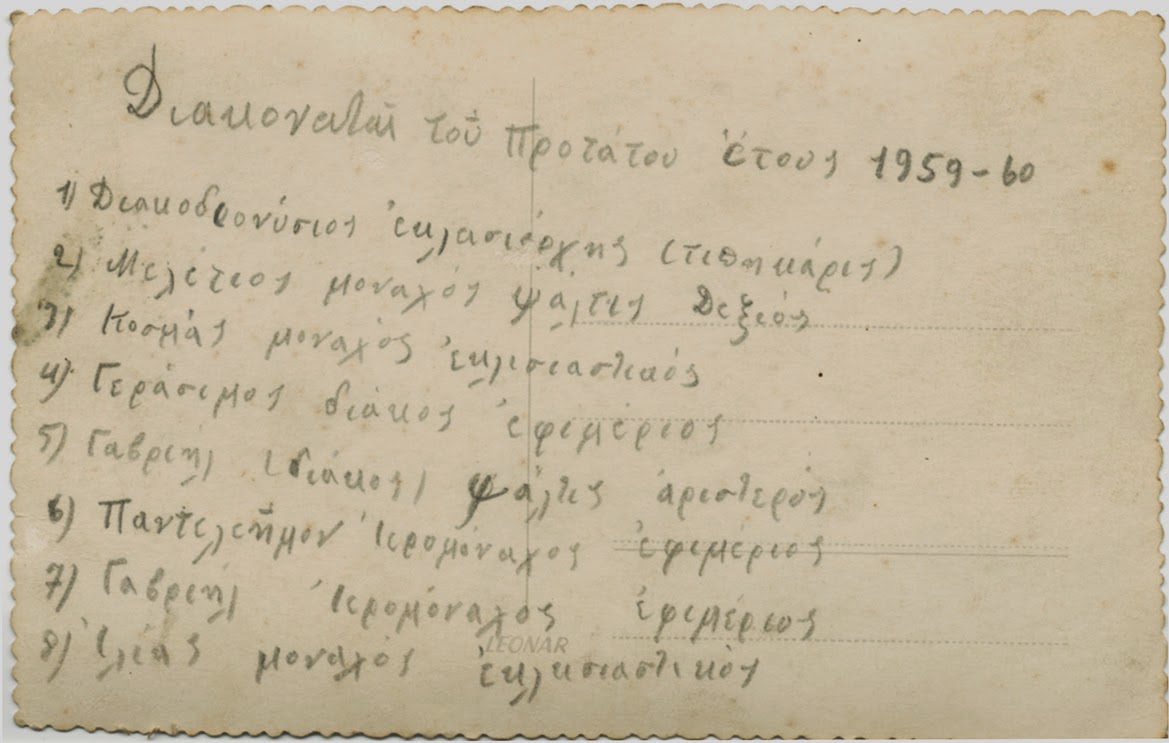 Διακοναταὶ τοῦ Προτάτου ἔτους 1959-60
1) Διακοδιονύσιος ἐκλασιάρχης (τιπηκάρις)
2) Μελέτιος μοναχός ψάλτις Δεξιός
3) Κοσμάς μοναχὸς ἐκλισιαστικός
4) Γεράσιμος διάκος ἐφιμέριος
5) Γαβριήλ (διάκος) ψάλτις ἀριστερός
6) Παντελεῆμον Ἱερομόναχος ἐφιμέριος
7) Γαβριήλ Ἱερομόναχος ἐφιμέριος
8) Ἰλίας μοναχός ἐκλησιαστικός
LEONAR